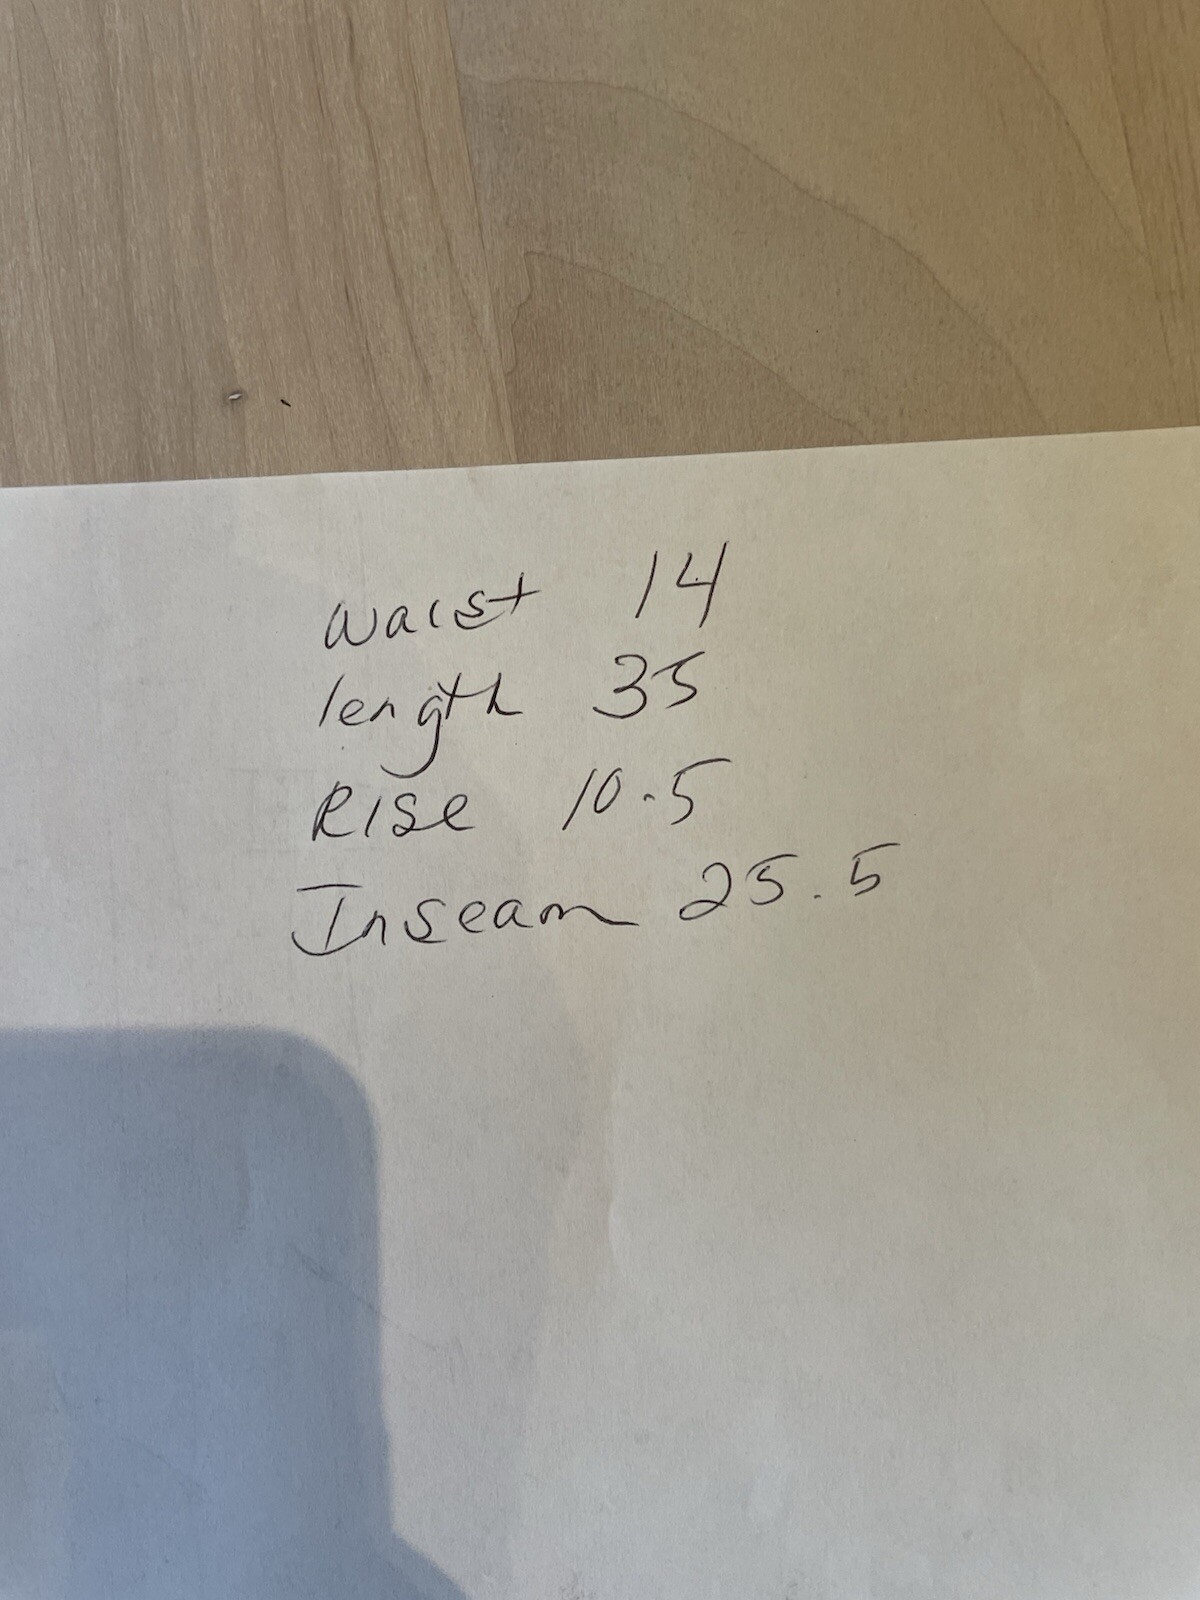 waist 14
length 35
Rise 10.5
Inseam 25.5